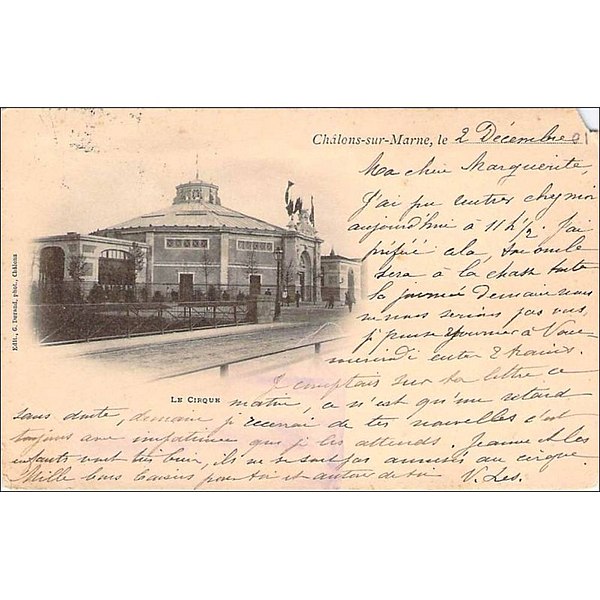 Châlons-sur-Marne, le 2 Décembre 01
Ma chère Marguerite,
J'ai pu rentrer chez moi
aujourd'hui à 11 h ½. J'ai
préféré cela
sera à la chasse toute
la journée demain nous
ne nous serions pas vus,
je pense retourner à
mercredi entre 2 trains.
Je comptais sur ta lettre ce
LE CIRQUE
matin, ce n'est qu'un retard
sans doute, demain je recevrai de tes nouvelles c'est
toujours avec impatience que je les attends. Jeanne et les
enfants vont très bien, ils ne se sont pas amusés au cirque.
Mille bons baisers pour toi et autour de toi V. Les.
Edit., G. Durand, phot., Châlons